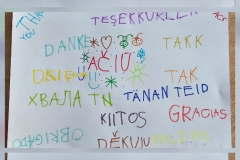 THANK YOU
TEŞEKKÜRLER
DANKE
TAKK
AČIŪ
TAK
ХВАЛА ТИ
TÄNAN TEID
KIITOS
GRACIAS
OBRIGADO
DĚKUJU